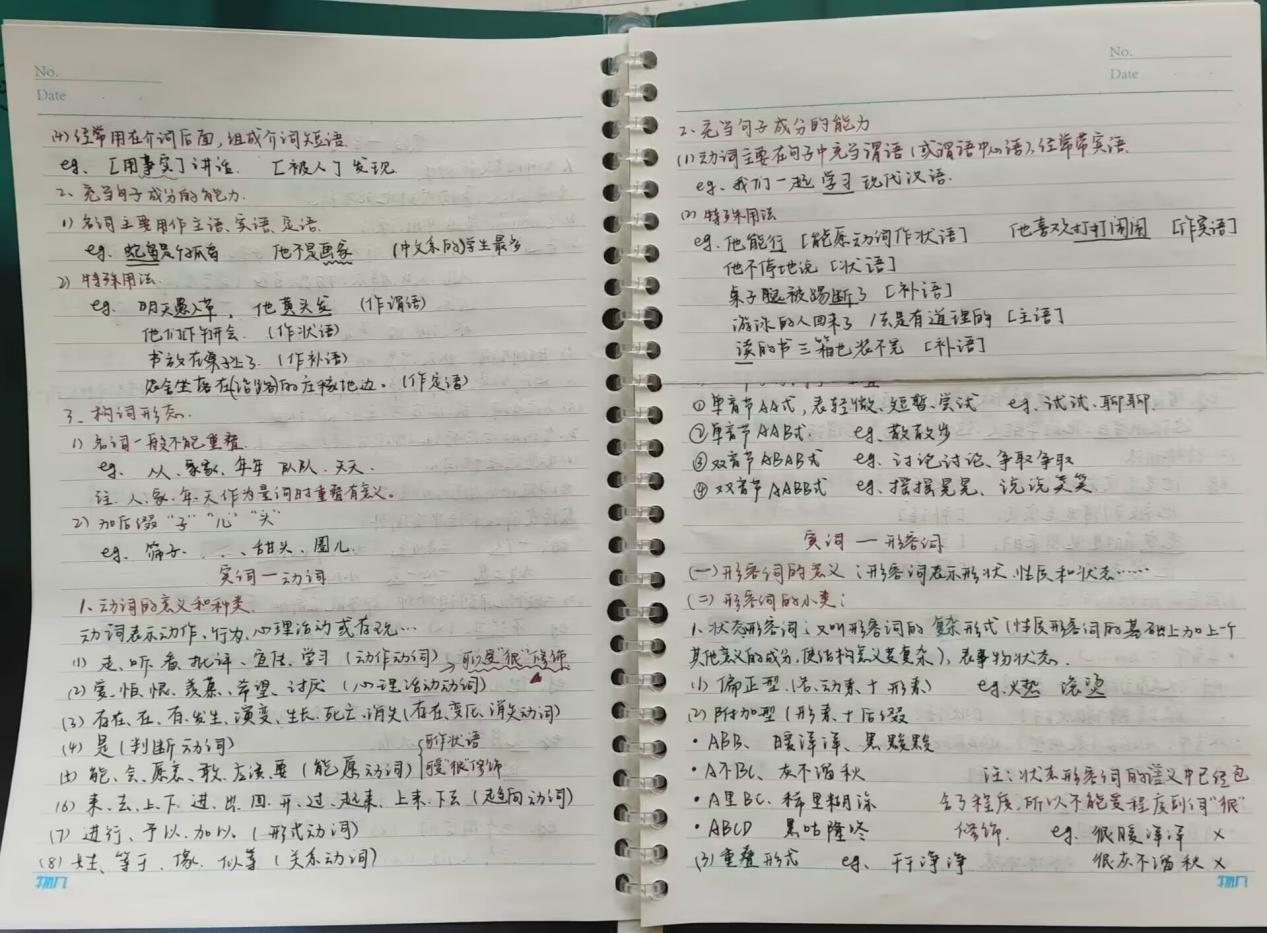 No.
Date
(4) 经常用在介词后面,组成介词短语.
eg、[用事实]讲话. [被人]发现
2、充当句子成分的能力.
1) 名词主要用作主语、宾语、定语.
eg. 是个孤岛 他不是画家 (中文系的)学生最多
2) 特殊用法.
eg. 明天愚人节, 他黄头发 (作谓语)
他们作研会. (作状语)
书放在桌子上了. (作补语)
宿舍坐落在(沿路)的左侧地边。(作定语)
3、构词形态.
1) 名词一般不能重叠.
eg、人、家家、年年 队队、天天.
注、人、家、年、天作为量词时重叠有意义。
2) 加后缀“子”“儿”“头”
eg. 筛子、 . . 、甜头、圈儿.
实词一动词
1、动词的意义和种类.
动词表示动作、行为、心理活动或存现…
(1) 走、听、看、批评、宣传、学习 (动作动词) 可以受“很”修饰
(2) 爱、怕、恨、羡慕、希望、讨厌 (心理活动动词)
(3) 存在、在、有、发生、演变、生长、死亡、消失(存在、变化、消失动词)
(4) 是 (判断动词)
(5) 能、会、愿意、敢、应该、要 (能愿动词) 可作状语
可受“很”修饰
(6) 来、去、上、下、进、出、回、开、过、起来、上来、下去 (趋向动词)
(7) 进行、予以、加以、(形式动词)
(8) 姓、等于、像、似等 (关系动词)
No.
Date
2、充当句子成分的能力
(1) 动词主要在句子中充当谓语 (或谓语中心语),经常带宾语.
eg、我们一起 学习 现代汉语.
(2) 特殊用法
eg. 他能行 [能愿动词作状语] 他喜欢打打闹闹 [作宾语]
他不停地说 [状语]
桌子腿被踢断了 [补语]
游泳的人回来了 /去是有道理的 [主语]
读的书三箱也装不完 [补语]
① 单音节AA式,表轻微、短暂、尝试 eg、试试、聊聊.
② 单音节AAB式 eg、散散步
③ 双音节ABAB式 eg、讨论讨论、争取争取
④ 双音节AABB式 eg、摇摇晃晃、说说笑笑
实词 一 形容词
(一) 形容词的意义 :形容词表示形状、性质和状态……
(二) 形容词的小类:
1、状态形容词:又叫形容词的复杂形式 (性质形容词的基础上加上一个
其他意义的成分,使语构意义变复杂),表事物状态.
(1) 偏正型 (名、动素 + 形素) eg、火热 滚烫
(2) 附加型 (形素 + 后缀
· ABB、暖洋洋、黑黢黢
· A不BC、灰不溜秋 注:状态形容词的语义中已经包
· A里BC、稀里糊涂 含了程度,所以不能受程度副词“很”
· ABCD 黑咕隆咚 修饰. eg. 很暖洋洋 ×
(3) 重叠形式 eg、干干净净 很灰不溜秋 ×